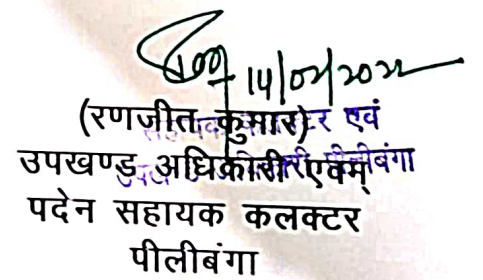 14/02/2022
(रणजीत कुमार)
उपखण्ड अधिकारी एवम्
पदेन सहायक कलक्टर
पीलीबंगा